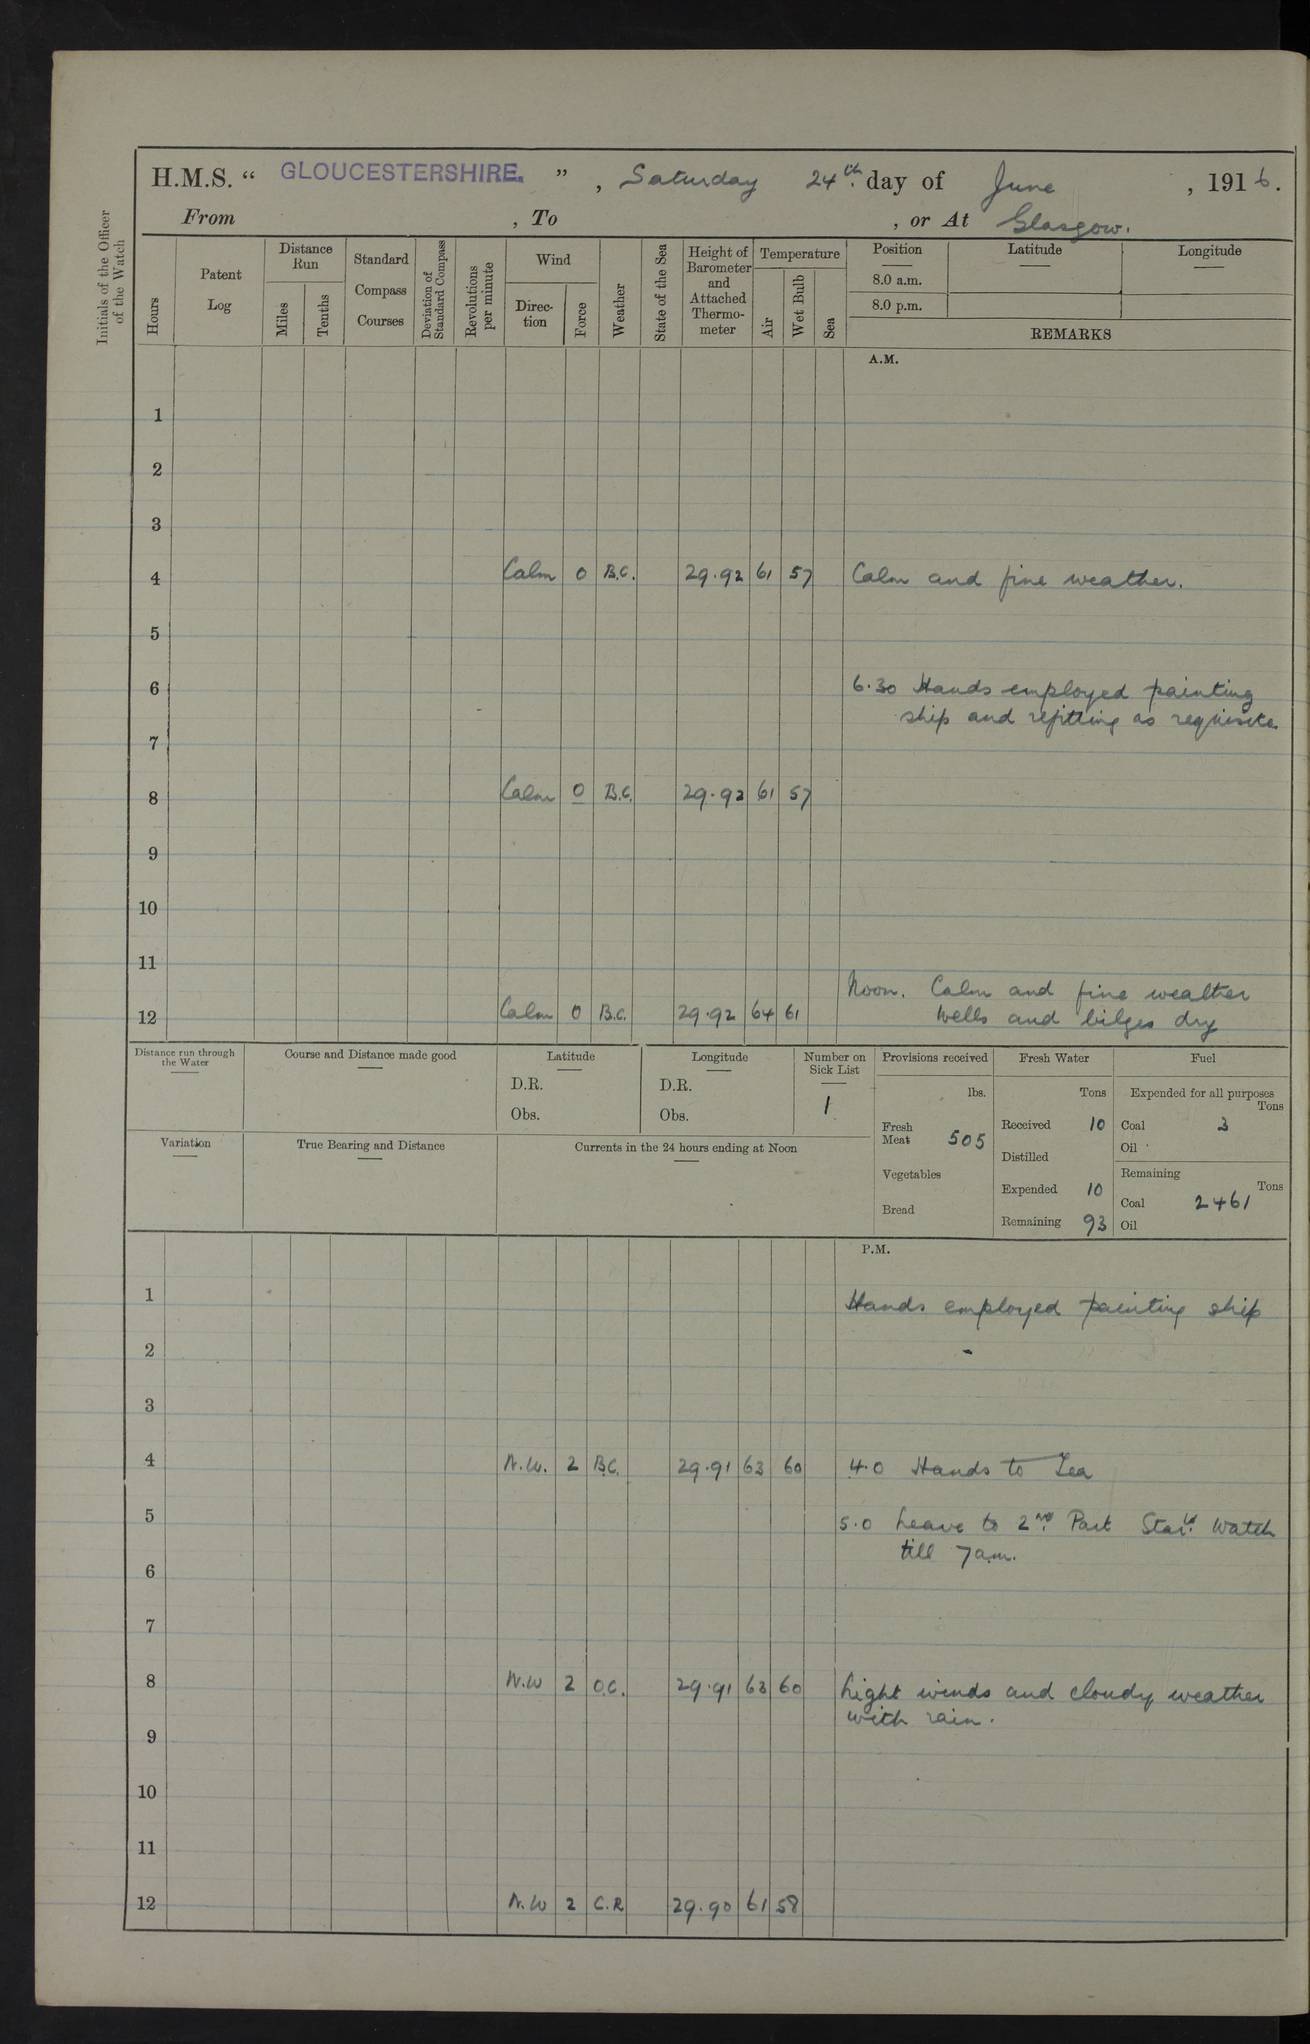 H.M.S. “ GLOUCESTERSHIRE. ” , Saturday 24th day of June , 1916.
From , To , or At Glasgow.
Initials of the Officer of the Watch
Hours
Patent Log
Distance Run
Miles
Tenths
Standard Compass Courses
Deviation of Standard Compass
Revolutions per minute
Wind
Direc-tion
Force
Weather
State of the Sea
Height of Barometer and Attached Thermo-meter
Temperature
Air
Wet Bulb
Sea
Position
8.0 a.m.
8.0 p.m.
Latitude
Longitude
REMARKS
A.M.
1
2
3
4 Calm 0 B.C. 29.92 61 57 Calm and fine weather.
5
6 6.30 Hands employed painting
ship and refitting as requisite
7
8 Calm 0 B.C. 29.92 61 57
9
10
11
Noon. Calm and fine weather
12 Calm 0 B.C. 29.92 64 61 Wells and bilges dry
Distance run through the Water
Course and Distance made good
Latitude
D.R.
Obs.
Longitude
D.R.
Obs.
Number on Sick List
1
Provisions received
lbs.
Fresh Meat 505
Vegetables
Bread
Fresh Water
Tons
Received 10
Distilled
Expended 10
Remaining 93
Fuel
Expended for all purposes
Tons
Coal 3
Oil
Remaining
Tons
Coal 2461
Oil
Variation
True Bearing and Distance
Currents in the 24 hours ending at Noon
P.M.
1 Hands employed painting ship
2
3
4 N.W. 2 B.C. 29.91 63 60 4.0 Hands to Tea
5 5.0 Leave to 2nd Part Starbd Watch
till 7am.
6
7
8 N.W 2 O.C. 29.91 63 60 Light winds and cloudy weather
with rain.
9
10
11
12 N.W 2 C.R 29.90 61 58